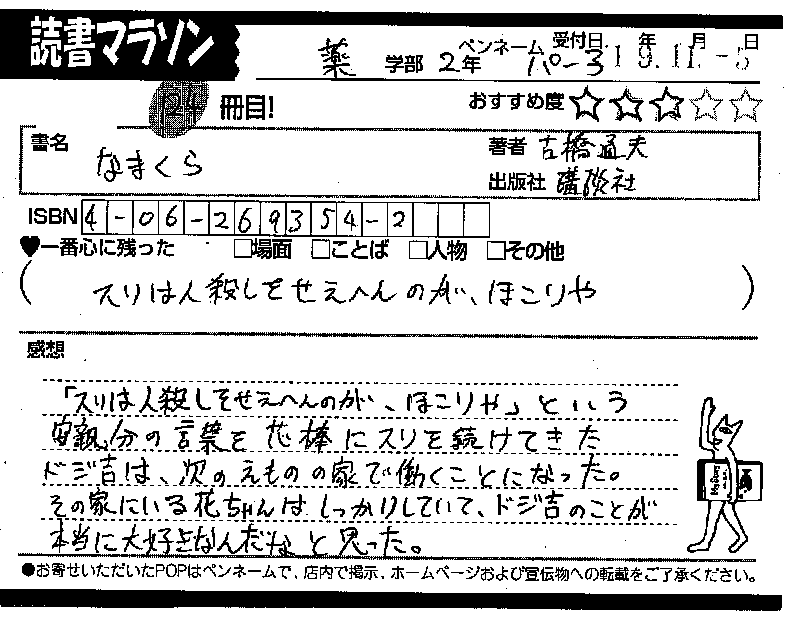 読書マラソン
薬 学部 2年 ペンネーム パー3 受付日 19年11月-5日
124 冊目!
おすすめ度 ☆☆☆☆☆
書名 なまくら
著者 吉橋通夫
出版社 講談社
ISBN 4-06-269354-2
♥一番心に残った □場面 □ことば □人物 □その他
(スリは人殺しをせえへんのが、ほこりや)
感想
「スリは人殺しをせえへんのが、ほこりや」という
親分の言葉を 花棒にスリを続けてきた
ドジ吉は、次のえものの家で働くことになった。
その家にいる花ちゃんはしっかりしていて、ドジ吉のことが
本当に大好きなんだなと思った。
●お寄せいただいたPOPはペンネームで、店内で掲示、ホームページおよび宣伝物への転載をご了承ください。